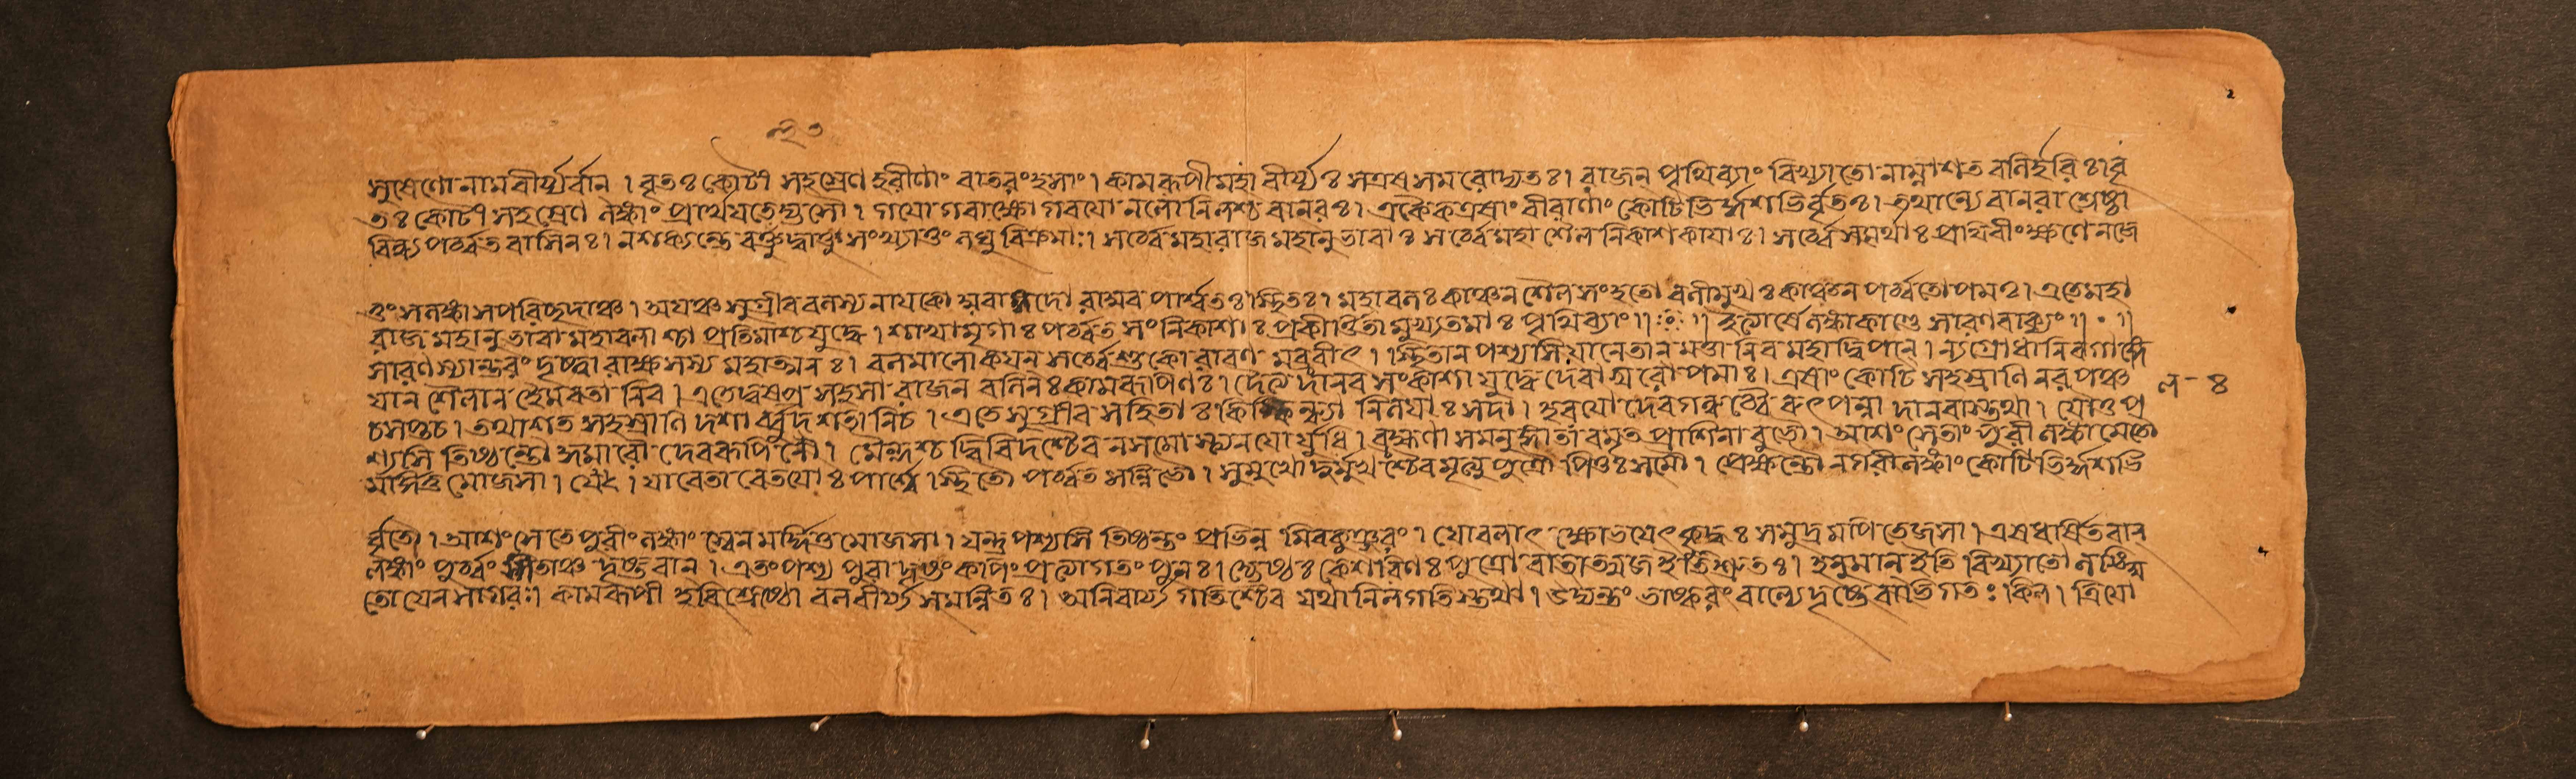 সুষেণো নাম বীর্য্যবান । বৃতঃ কোটী সহস্রেণ হরীণাং বাতরংহসাং । কামরূপী মহাবীর্য্যঃ স এষ সমরোদ্যতঃ । রাজন্ পৃথিব্যাং বিখ্যাতো নাম্না শতবলির্হরিঃ । বৃ
তঃ কোটী সহস্রেণ লঙ্কাং প্রার্থয়তেহ্যসৌ । গযো গবাক্ষো গবযো নলো নিলশ্চ বানরঃ । একৈক এষাং বীরাণাং কোটিভির্দ্দশভির্বৃতঃ । তথান্যে বানরা শ্রেষ্ঠা
বিন্ধ্যপর্ব্বত বাসিনঃ । ন শক্যন্তে বহুত্বাত্তু সংখ্যাতুং লঘু বিক্রমাঃ । সর্ব্বে মহারাজ মহানুভাবাঃ সর্ব্বে মহাশৈল নিকাশ কাযাঃ । সর্ব্বে সমর্থাঃ প্রথিবীং ক্ষণেন জে
তুং সলঙ্কা সপরিচ্ছদাঞ্চ । অযঞ্চ সুগ্রীব বলস্য নাযকো রাঘব পার্শ্বতঃ স্থিতঃ । মহাবলঃ কাঞ্চন শৈল সংহতো বলীমুখঃ কাঞ্চন পর্ব্বতোপমঃ । এতে মহা
রাজ মহানুভাবা মহাবলা প্রতিমাশ্চ যুদ্ধে । শাখামৃগাঃ পর্ব্বত সংনিকাশাঃ প্রকীর্ত্তিতা মুখ্যতমাঃ পৃথিব্যাং ॥ ॥ ইত্যার্ষে লঙ্কাকাণ্ডে সারণবাক্যং ॥ • ॥
সারণস্যান্তরং দৃষ্ট্বা রাক্ষসস্য মহাত্মনঃ । বলমালোকযন্ সর্ব্বে শুকো রাবণ মব্রবীৎ । স্থিতান পশ্যসি যানেতান মত্তানিব মহাদ্বিপান্ । ন্যগ্রোধানিব গাঙ্গে
যান শৈলান হৈমবতানিব । এতে দুষ্প্রসহা রাজন বলিনঃ কামরূপিণঃ । দৈত্য দানব সংকাশা যুদ্ধে দেবা পমাঃ । এষাং কোটি সহস্রাণি নব পঞ্চ
চ সপ্ত চ । তথা শত সহস্রাণি দশার্ব্বুদ শতানি চ । এতে সুগ্রীব সহিতাঃ নিলযাঃ সদা । হরযো দেব গন্ধর্ব্বৈ রুৎপন্না দানবাস্তথা । যৌ তু প
শ্যসি তিষ্ঠন্তৌ কুমারৌ দেবরূপিণৌ । মৈন্দশ্চ দ্বিবিদশ্চৈব ন সমোস্ত্যনযোর্যুধি । ব্রহ্মণা সমনুজ্ঞাতা বমৃত প্রাশিনা বুভৌ । আশংসেতাং পুরী লঙ্কা মেতৌ
মর্দ্দিতু মোজসা । যাবেতা বেতযোঃ পার্শ্বে স্থিতৌ পর্ব্বত সন্নিভৌ । সুমুখো দুর্মুখশ্চৈব মৃত্যুপুত্রৌ পিতুঃ সমৌ । প্রেক্ষন্তৌ নগরী লঙ্কাং কোটিভির্দ্দশভি
র্ব্বৃতৌ । আশংসেতে পুরীং লঙ্কাং স্বেন মর্দ্দিতু মোজসা । যন্তু পশ্যসি তিষ্ঠন্তং প্রভিন্ন মিব কুঞ্জরং । যো বলাৎ ক্ষোভযেৎ ক্রুদ্ধঃ সমুদ্রমপি তেজসা । এষ ধর্ষিতবান
লঙ্কাং পূর্ব্বং সীতাঞ্চ দৃষ্টবান্ । এতং পশ্য পুরা দৃষ্টং কপিং প্রত্যাগতং পুনঃ । জ্যেষ্ঠঃ কেশরিণঃ পুত্রো বাতাত্মজ ইতি শ্রুতঃ । হনুমান্ ইতি বিখ্যাতো লঙ্ঘি
তো যেন সাগরঃ । কামরূপী হরিশ্রেষ্ঠো বলবীর্য্য সমন্বিতঃ । অনিবার্য্য গতিশ্চৈব যথানিলগতিস্তথা । উদ্যন্তং ভাস্করং বাল্যে দৃষ্ট্বৈবাভিগতঃ কিল । ত্রিযো
ল - ৪